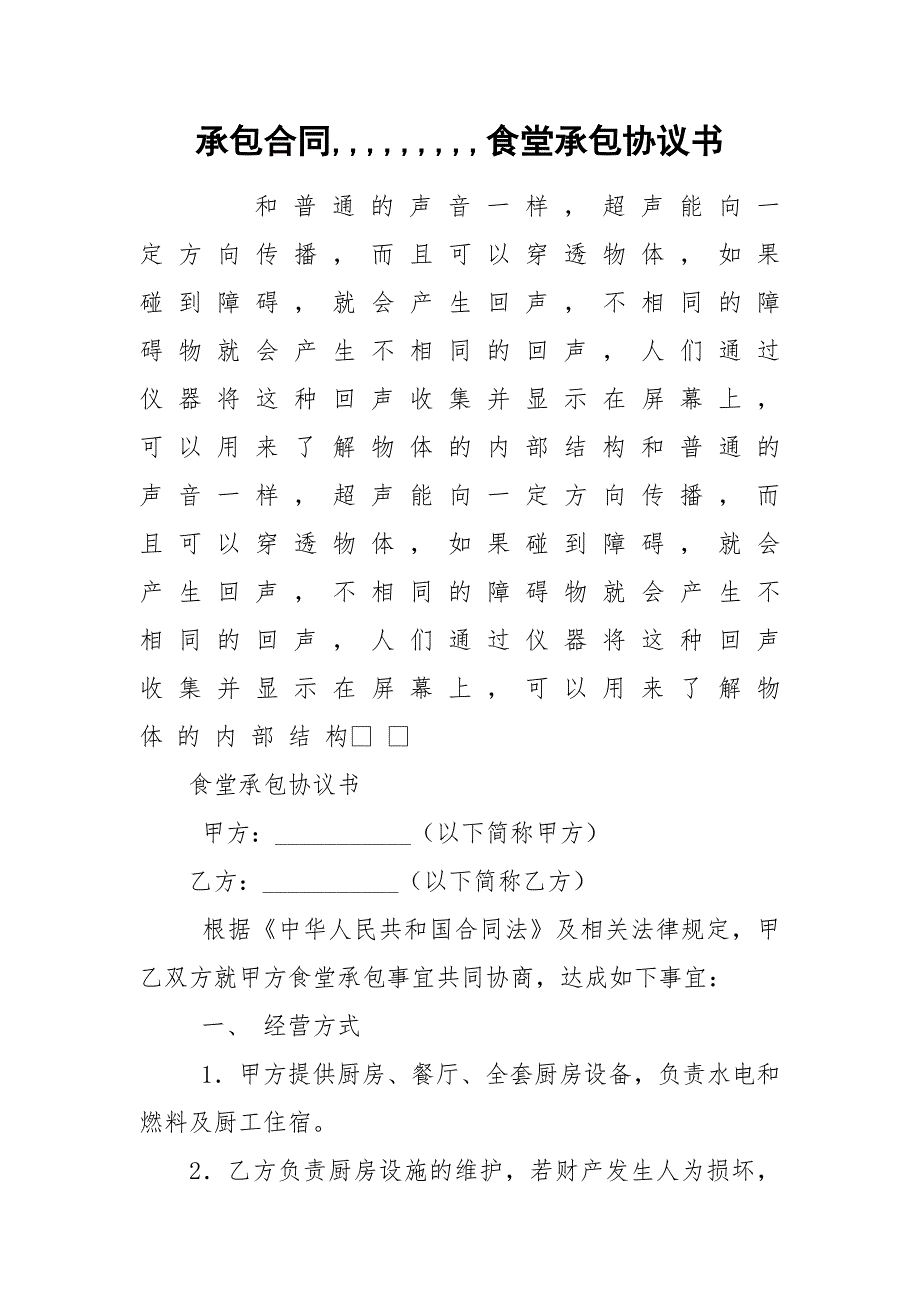 承包合同,,,,,,,,,食堂承包协议书
和普通的声音一样，超声能向一
定方向传播，而且可以穿透物体，如果
碰到障碍，就会产生回声，不相同的障
碍物就会产生不相同的回声，人们通过
仪器将这种回声收集并显示在屏幕上，
可以用来了解物体的内部结构和普通的
声音一样，超声能向一定方向传播，而
且可以穿透物体，如果碰到障碍，就会
产生回声，不相同的障碍物就会产生不
相同的回声，人们通过仪器将这种回声
收集并显示在屏幕上，可以用来了解物
体的内部结构□ □
食堂承包协议书
甲方：___________（以下简称甲方）
乙方：___________（以下简称乙方）
根据《中华人民共和国合同法》及相关法律规定，甲
乙双方就甲方食堂承包事宜共同协商，达成如下事宜：
一、 经营方式
1．甲方提供厨房、餐厅、全套厨房设备，负责水电和
燃料及厨工住宿。
2．乙方负责厨房设施的维护，若财产发生人为损坏，